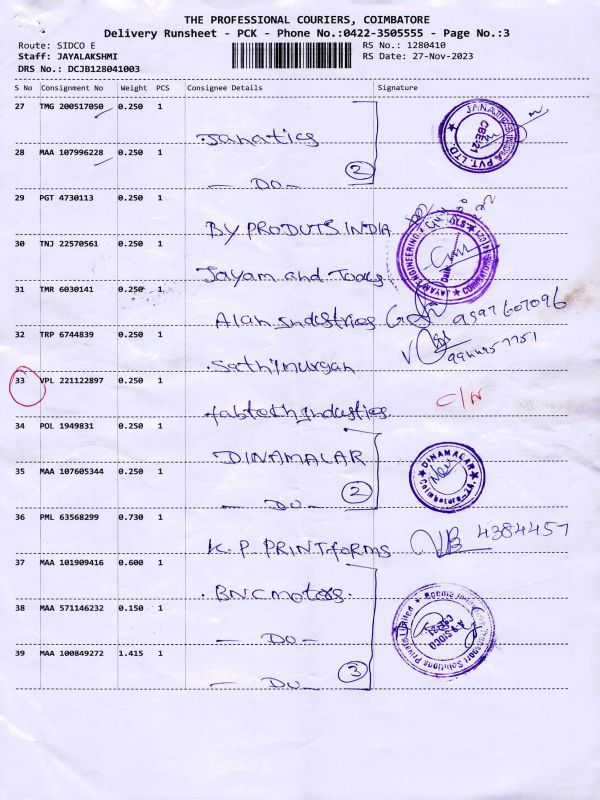 THE PROFESSIONAL COURIERS, COIMBATORE
Delivery Runsheet - PCK - Phone No.:0422-3505555 - Page No.:3
Route: SIDCO E
RS No.: 1280410
Staff: JAYALAKSHMI
RS Date: 27-Nov-2023
DRS No.: DCJB128041003
S No Consignment No Weight PCS Consignee Details Signature
27 TMG 200517050 0.250 1
Janatics
28 MAA 107996228 0.250 1
2
— DO —
29 PGT 4730113 0.250 1
BY PRODUTS INDIA
30 TNJ 22570561 0.250 1
Jayam and Tools
31 TMR 6030141 0.250 1
Alan industries 9597607096
32 TRP 6744839 0.250 1
Sathimurgan
33 VPL 221122897 0.250 1
C/N
34 POL 1949831 0.250 1
DINAMALAR
DINAMALAR
Coimbatore
35 MAA 107605344 0.250 1
2
— DO —
36 PML 63568299 0.730 1
K. P. PRINT forms 4384457
37 MAA 101909416 0.600 1
BNC motors
38 MAA 571146232 0.150 1
— DO —
39 MAA 100849272 1.415 1
3
— DO —